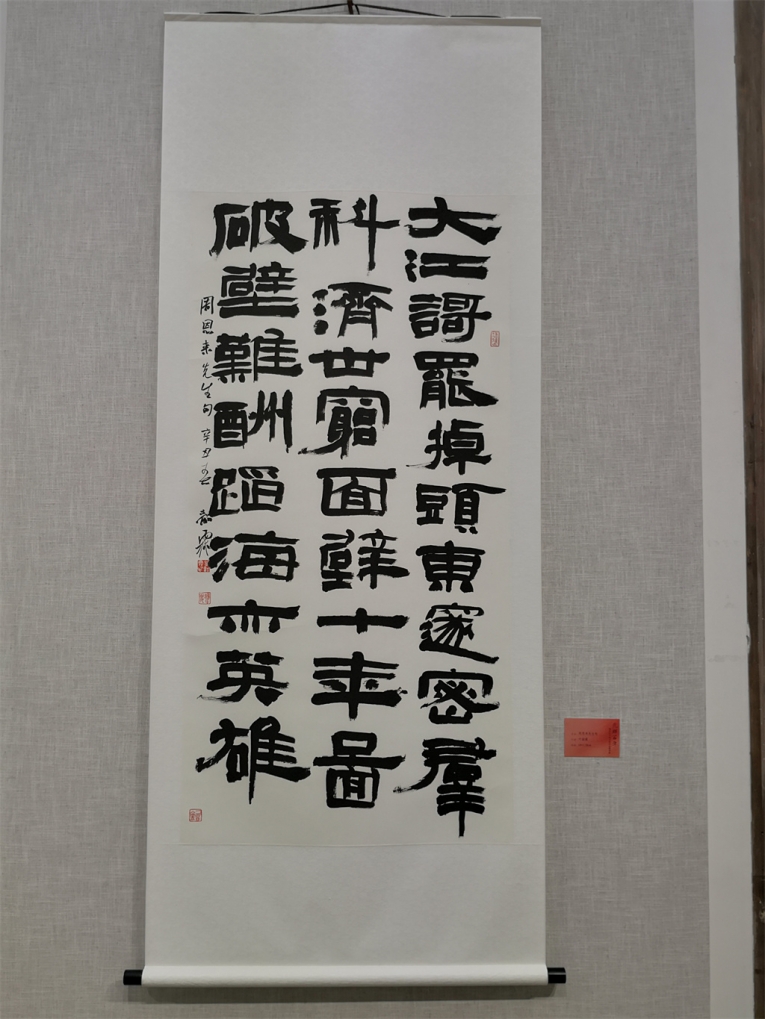 大江謌罷掉頭東邃密羣
科濟世窮面壁十年圖
破壁難酬蹈海亦英雄
周恩来先生句 辛丑